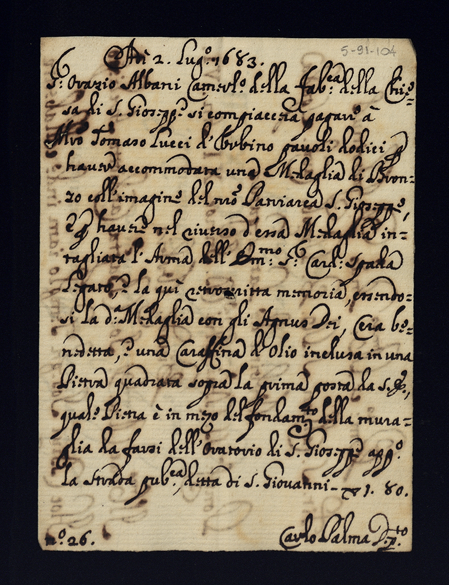 5-91-104
Adì 2. Lug.º 1683.
S.r Orazio Albani Camerl.º della Fab.ca della Chie=
sa di S. Giosepp.e si compiacerà pagar.e à
Mro Tomaso Lucci d'Urbino pauoli dodici p
hauer accommodata una Medaglia di Bron=
zo coll'imagine del nro Patriarca S. Giosepp.e,
e p hauer.e nel riuerso d'essa Medaglia in=
tagliata l'Arma dell'Em.mo S.r Card: Spada
Legato, e la quì retroscritta memoria, essendo=
si la d.a Medaglia con gli Agnus Dei, Cera be=
nedetta, e una Caraffina di Olio inclusa in una
Pietra quadrata sopra la prima posta da S. E.,
quale Pietra è in mezo del fondam.to della mura=
glia da farsi dell'Oratorio di S. Giosepp.e app.º
la Strada pub.ca, detta di S. Giovanni — 1. 80.
n.º 26. Carlo Palma P.to